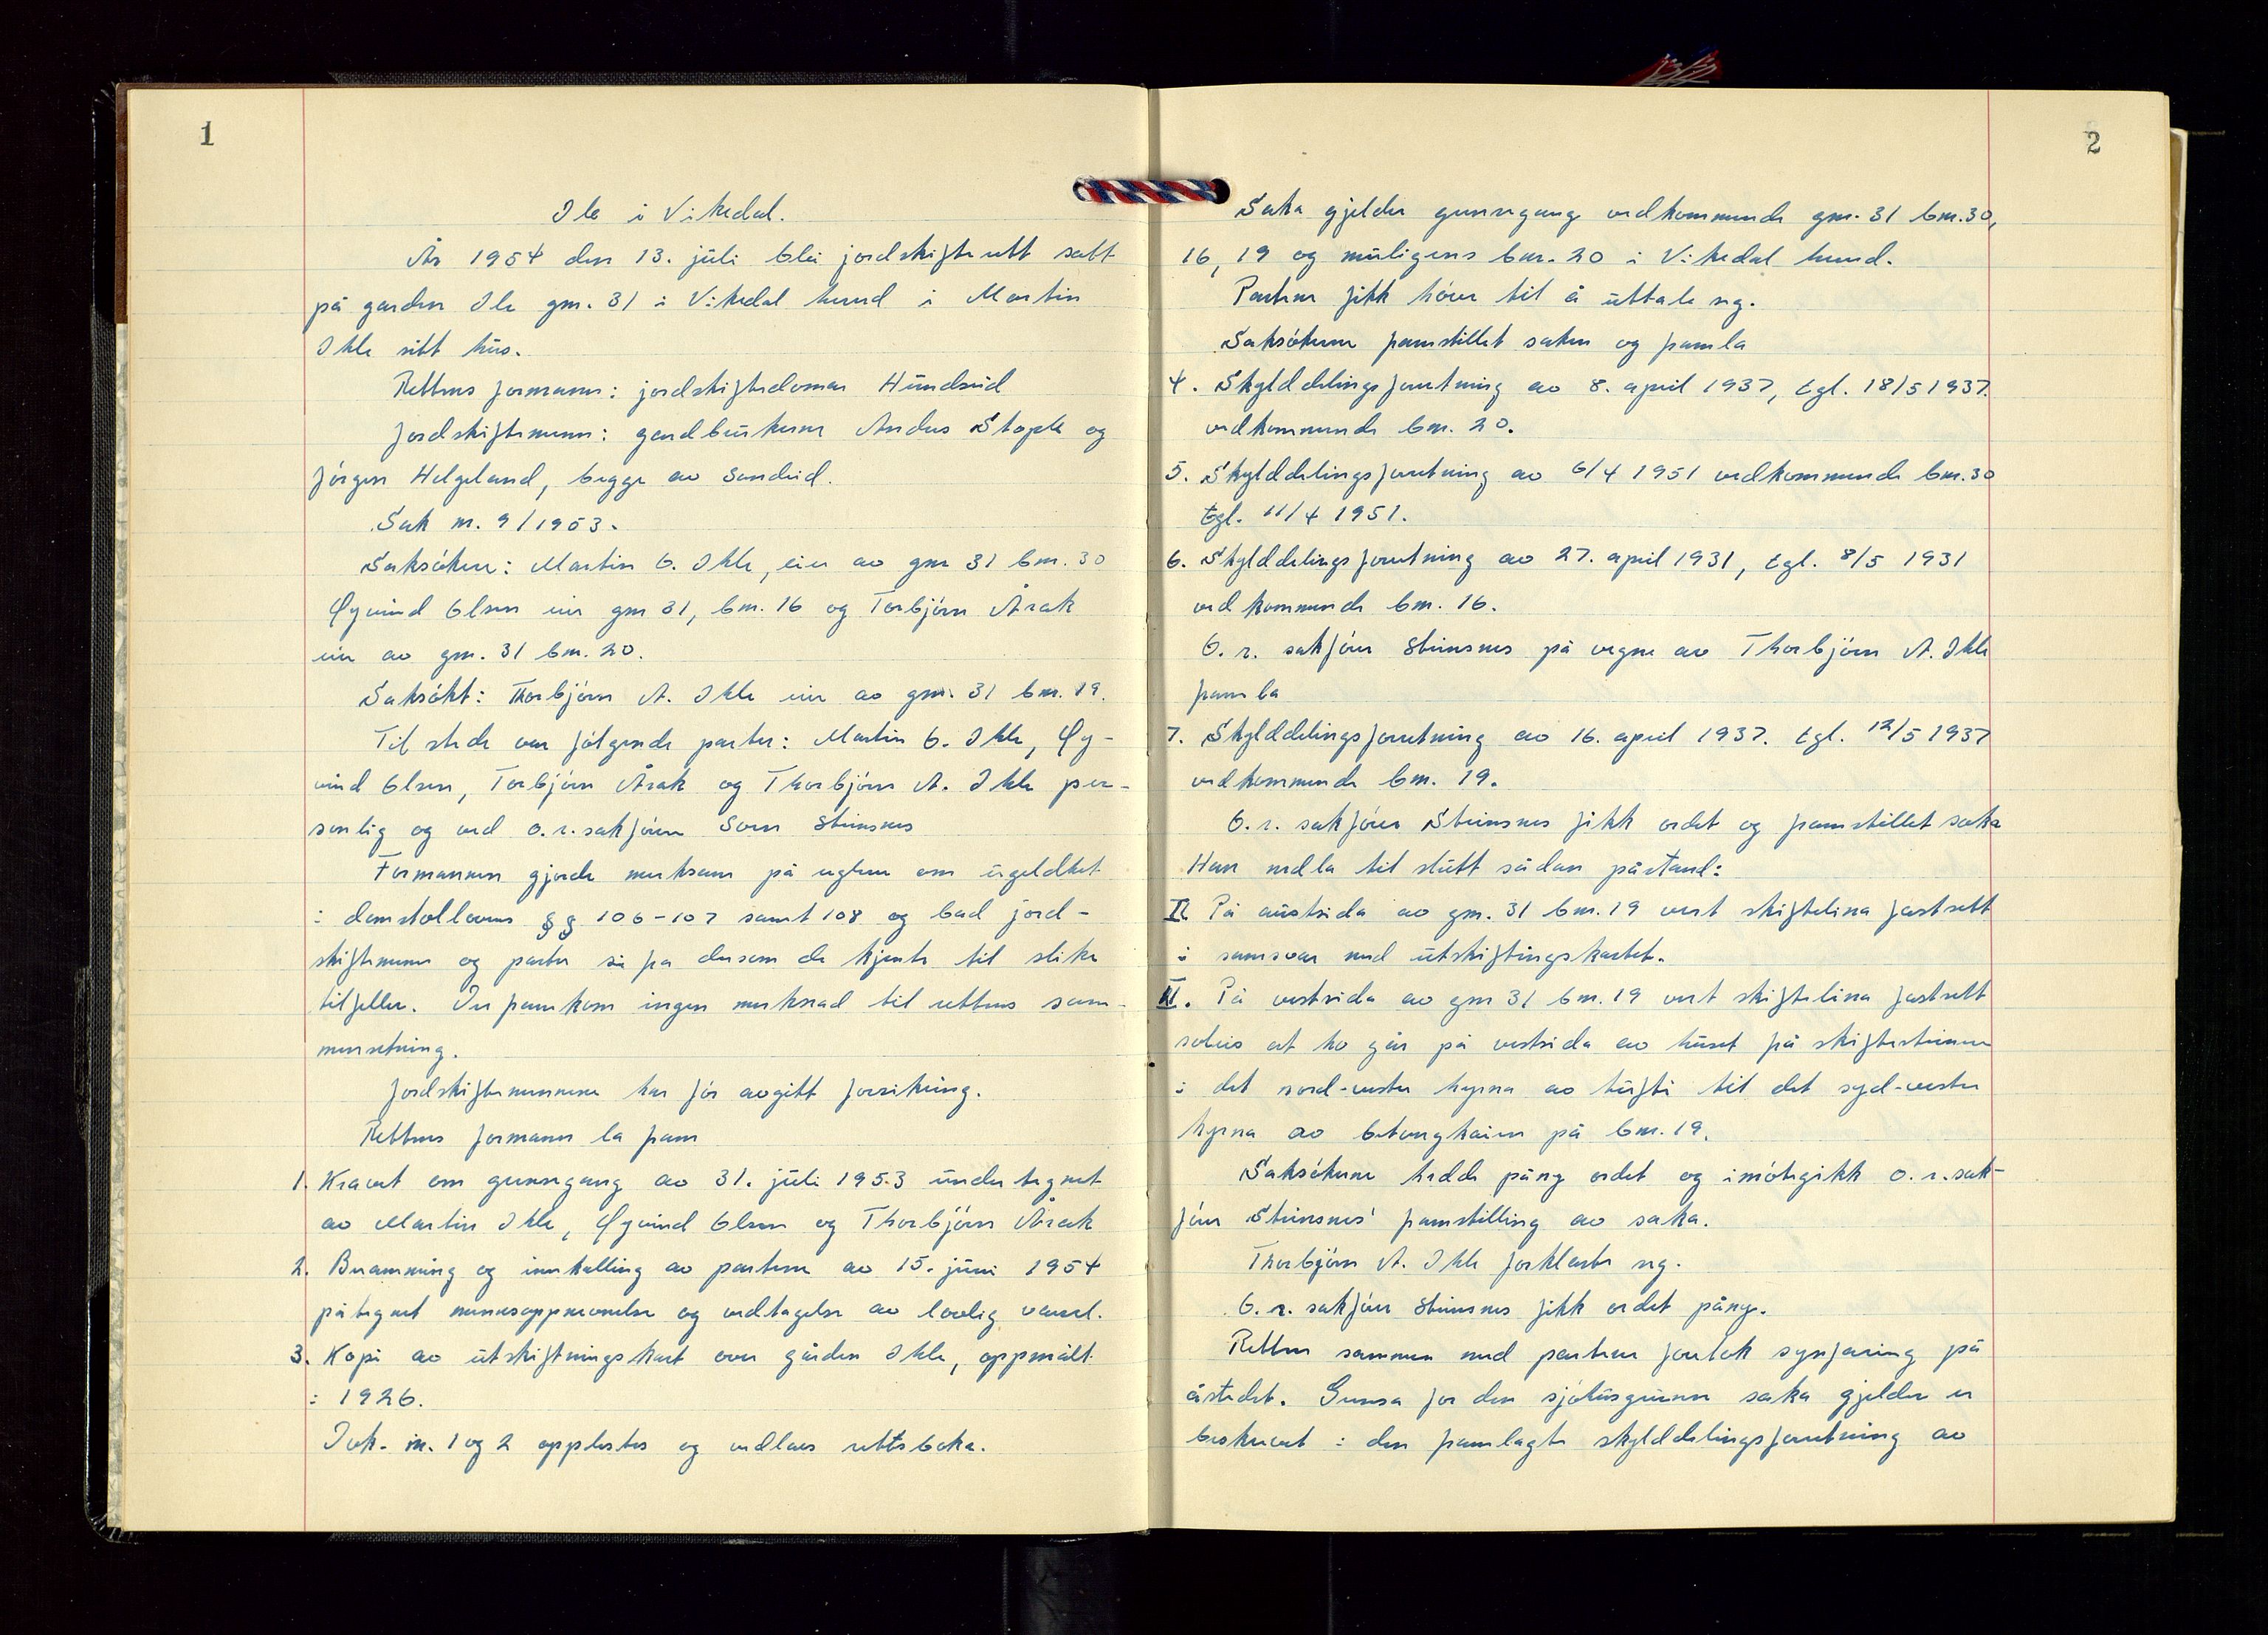 1
Ile i Vikedal.
År 1954 den 13. juli blei jordskifterett satt
på garden Ile gnr. 31 i Vikedal herad i Martin
Ihle sitt hus.
Rettens formann: jordskiftedomar Hundseid
Jordskiftemenn: gardbrukerne Andres Stople og
Jørgen Helgeland, begge av Sandeid.
Sak nr. 9/1953.
Saksøkere: Martin O. Ihle, eier av gnr 31 bnr. 30
Øyvind Olsen eier gnr 31, bnr. 16 og Torbjørn Årak
eier av gnr. 31 bnr. 20.
Saksøkt: Thorbjørn A. Ihle eier av gnr. 31 bnr. 19.
Til stede var følgende parter: Martin O. Ihle, Øy-
vind Olsen, Torbjørn Årak og Thorbjørn A. Ihle per-
sonlig og ved o.r.sakfører Sven Steinsnes
Formannen gjorde merksam på reglene om ugeldhet
i domstollovens §§ 106-107 samt 108 og bad jord-
skiftemenn og parter si fra dersom de kjente til slike
tilfeller. Der framkom ingen merknad til rettens sam-
mensetning.
Jordskiftemennene har før avgitt forsikring.
Rettens formann la fram
1. Kravet om grensegang av 31. juli 1953 undertegnet
av Martin Ihle, Øyvind Olsen og Thorbjørn Årak
2. Beramming og innkalling av partene av 15. juni 1954
påtegnet mennsoppnevnelse og vedtagelse av lovlig varsel.
3. Kopi av utskiftningskart over gården Ihle, oppmålt
i 1926.
Dok. nr. 1 og 2 opplestes og vedlaes rettsboka.
2
Saka gjelder grensegang vedkommende gnr. 31 bnr. 30,
16, 19 og muligens bnr. 20 i Vikedal herad.
Partene fikk høve til å uttale seg.
Saksøkerne framstillet saken og framla
4. Skylddelingsforretning av 8. april 1937, tgl. 18/5 1937.
vedkommende bnr. 20.
5. Skylddelingsforretning av 6/4 1951 vedkommende bnr. 30
tgl. 11/4 1951.
6. Skylddelingsforretning av 27. april 1931, tgl. 8/5 1931
vedkommende bnr. 16.
O. r. sakfører Steinsnes på vegne av Thorbjørn A. Ihle
framla
7. Skylddelingsforretning av 16. april 1937. tgl. 12/5 1937
vedkommende bnr. 19.
O. r. sakfører Steinsnes fikk ordet og framstillet saka
Han nedla til slutt sådan påstand:
I. På austsida av gnr. 31 bnr. 19 vert skiftelina fastsett
i samsvar med utskiftingskartet.
II. På vestsida av gnr 31 bnr. 19 vert skiftelina fastsett
soleis at ho går på vestsida av huset frå skiftesteinen
i det nord-vestre hyrna av tufti til det syd-vestre
hyrna av betongkaien på bnr. 19.
Saksøkerne hadde påny ordet og imøtegikk o.r.sak-
fører Steinsnes' framstilling av saka.
Thorbjørn A. Ihle forklarte seg.
O. r. sakfører Steinsnes fikk ordet påny.
Retten sammen med partene foretok synfaring på
åstedet. Grensa for den sjøhusgrunn saka gjelder er
beskrevet i den framlagte skylddelingsforretning av